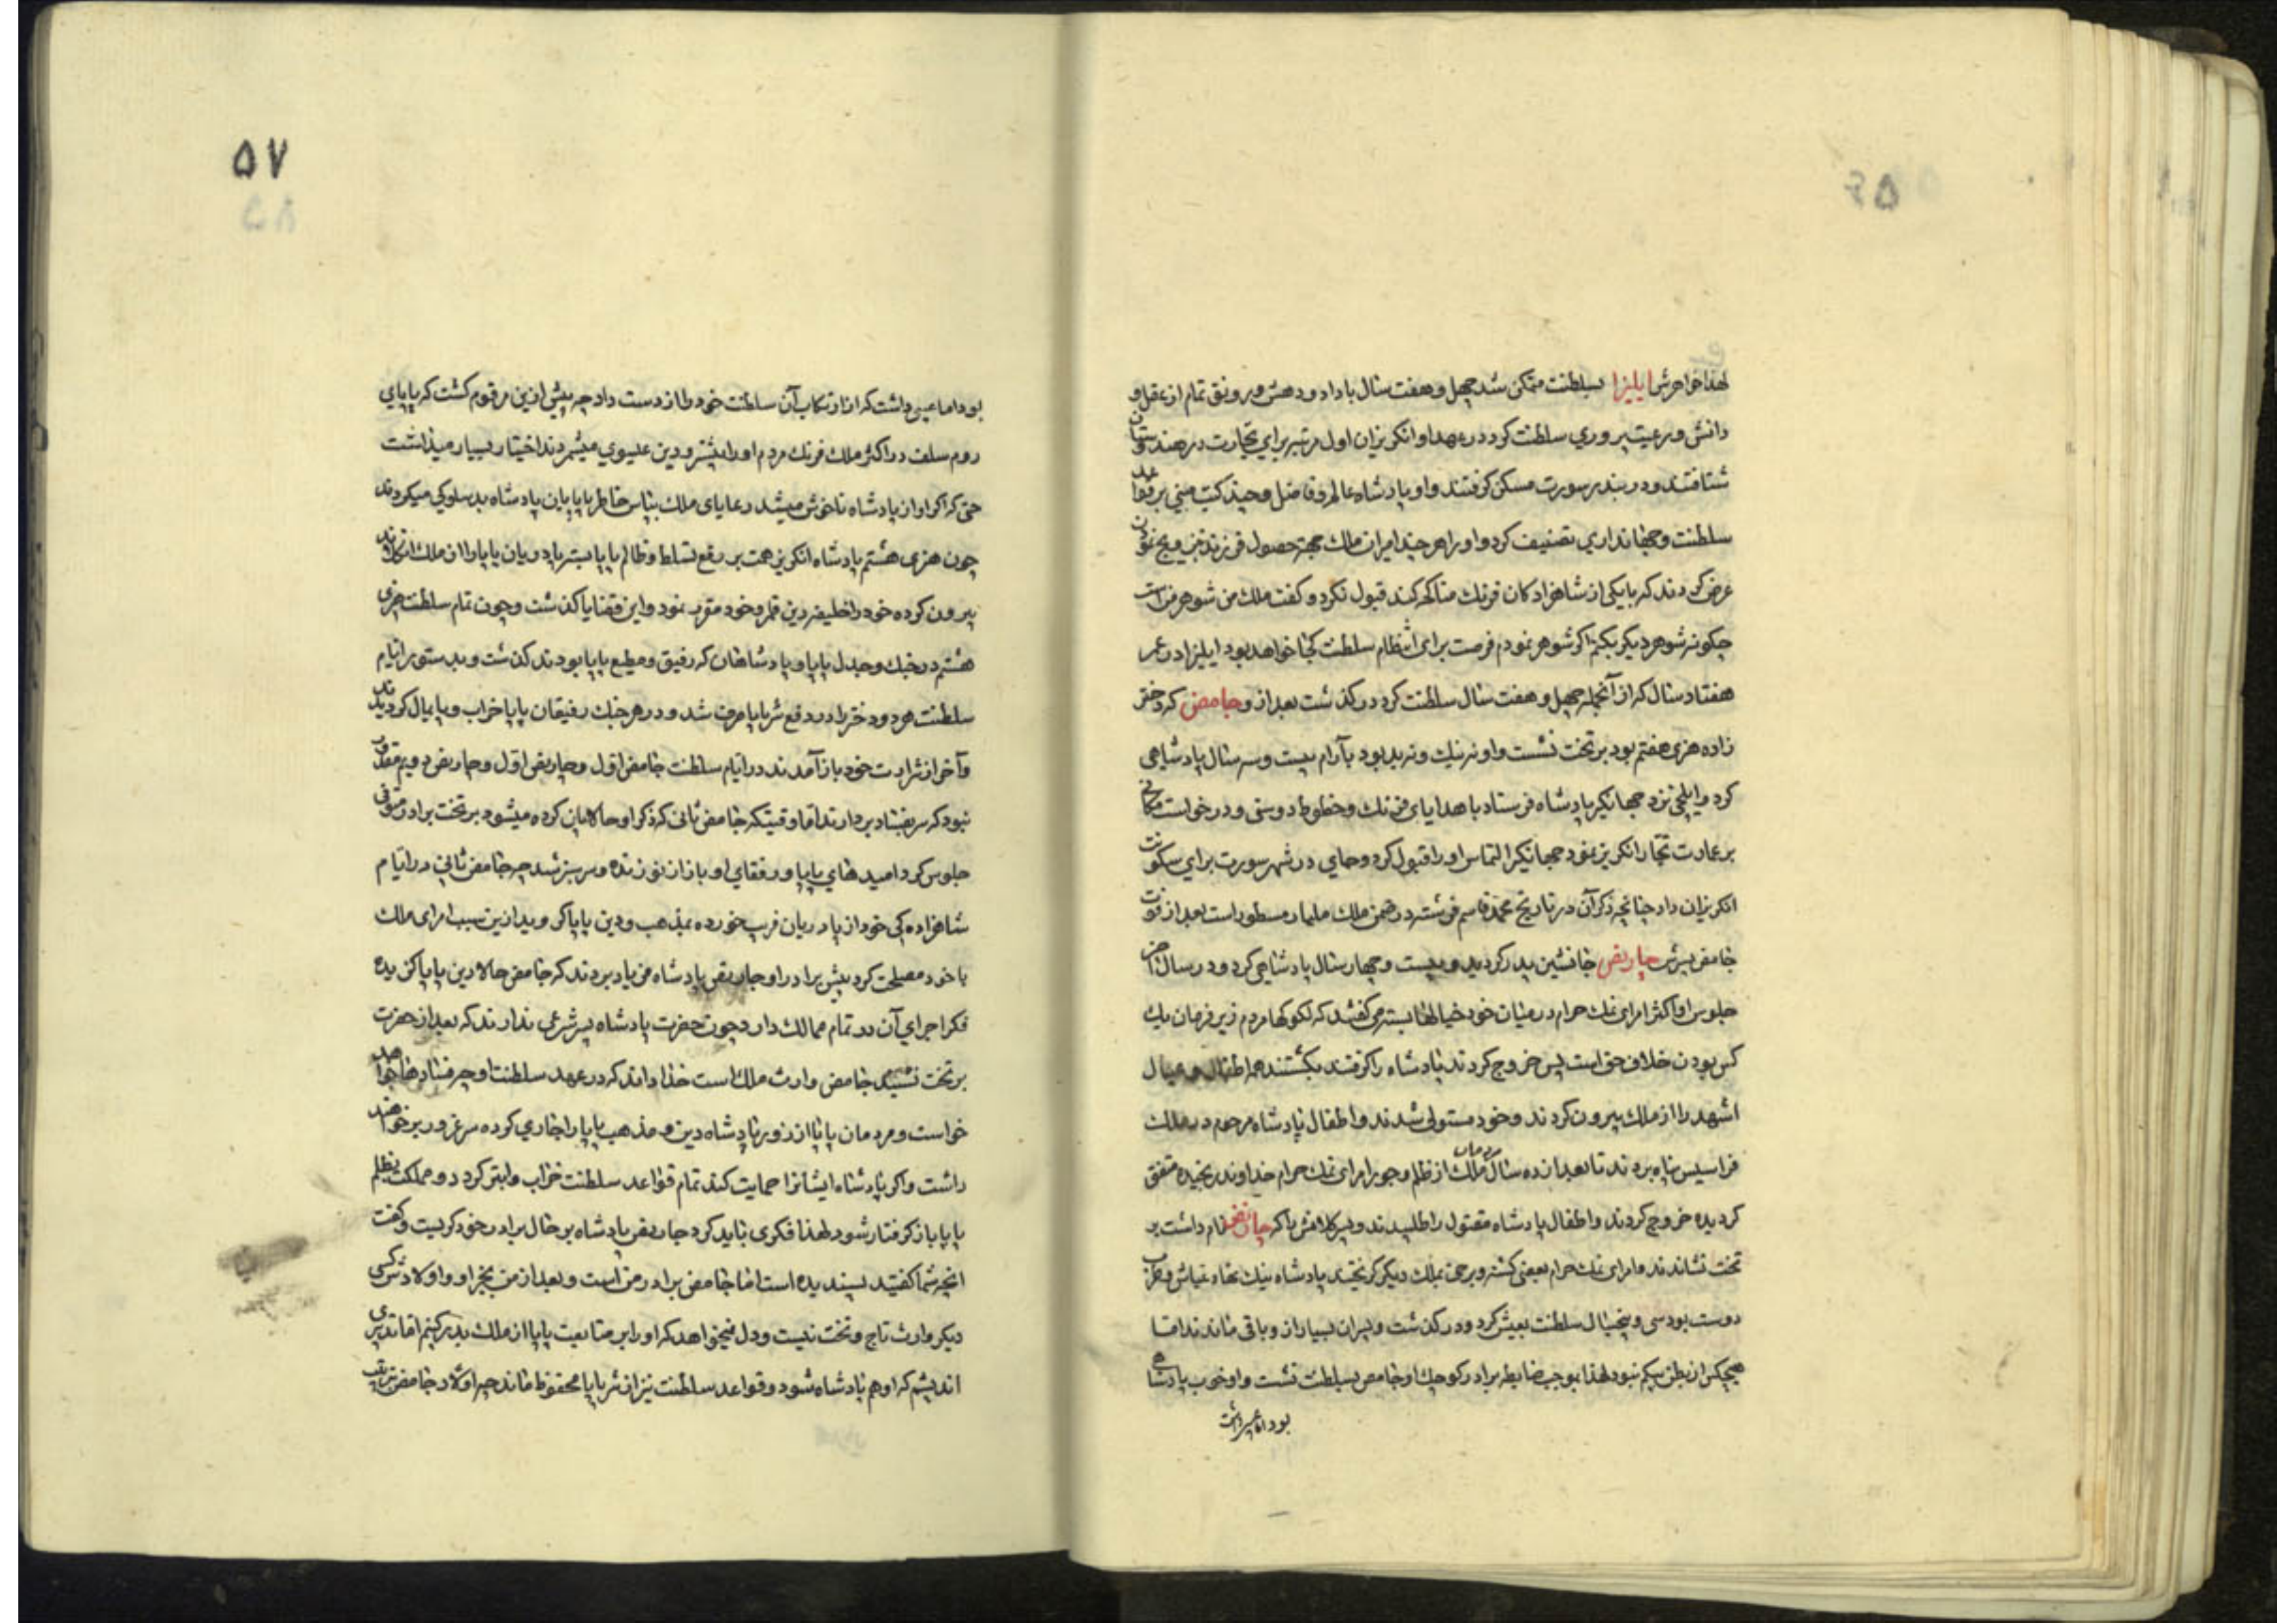 لهذا خواهرش ایلیزا بسلطنت متمکن شد چهل و هفت سال با داد و دهش و رونق تمام از عقل و
دانش و رعیت پروري سلطنت کرد در عهد او انکریزان اول مرتبه براي تجارت در هندوستان
شتافتند و در بندر سورت مسکن کرفتند و او پادشاه عالم و فاضل و چند کتب مبني بر قواعد
سلطنت و جهانداري تصنیف کرد و او را هر چند امیران ملک جهة حصول فرزند تزویج نمودن
عرض کردند که با یکی از شاهزادکان فرنك مناکحه کند قبول نکرد و کفت ملك من شوهر من است
چکونه شوهر دیکر بکنم اکر شوهر نمودم فرصت برای انتظام سلطنت کجا خواهد بود ایلیزا در عمر
هفتاد سال که از آنجمله چهل و هفت سال سلطنت کرد در کذشت بعد از و جامض که دختر
زاده هنری هفتم بود بر تخت نشست و او نه نیك و نه بد بود بآرام بیست و سه سال پادشاهی
کرد و ایلچی نزد جهانکیر پادشاه فرستاد با هدایای فرنك و خطوط دوستی و درخواست مکانی
بر عمارت تجار انکریز نمود جهانکیر التماس او را قبول کرد و جاي در شهر سورت براي سکونت
انکریزان داد چنانچه ذکر آن در تاریخ محمد قاسم فرشته در ضمن ملك ملیبار مسطور است بعد از فوت
جامض پسرش چارلض جانشین پدر کردید و بیست و چهار سال پادشاهی کرد و در سال آخر
جلوس او اکثر امرای نمك حرام در میان خود خیالها بسته می کفتند که لکوکها مردم زیر فرمان یك
کس بودن خلاف حق است پس خروج کردند پادشاه را کرفتند بکشتند همه اطفال و عیال
اشهد را از ملك بیرون کردند و خود مستولی شدند و اطفال پادشاه مرحوم در ملك
فراسیس پناه بردند تا بعد از ده سال مردمان ملك از ظلم و جور امرای نمك حرام خداوند رنجیده متفق
کردیده خروج کردند و اطفال پادشاه مقتول را طلبیدند و پسر کلانش را که چارلض نام داشت بر
تخت نشاندند و امرای نمك حرام بعضی کشته و برخی بملك دیکر کریختند پادشاه نیك نهاد عیاش و طرب
دوست بود سی و پنجسال سلطنت بعیش کرد و در کذشت و پسران بسیار از و باقی ماندند اما
هیچکس از بطن بیکم نبود لهذا بموجب ضابطه برادر کوچك او جامض بسلطنت نشست و او خوب پادشاهی
بود اما عیبی داشت
۵۷
بود اما عیبی داشت که از ارتکاب آن سلطنت خود را از دست داد چه پیش ازین مرقوم کشت که پاپاي
روم سلف در اکثر ملك فرنك مردم او را پیشرو دین عیسوي میشمردند اختیار بسیار میداشت
حتی که اکر او از پادشاه ناخوش میشد رعایای ملك بپاس خاطر پاپا بآن پادشاه بدسلوکی میکردند
چون هنری هشتم پادشاه انکریز همت بر رفع تسلط و ظالم پاپا بسته پادریان پاپا را از ملك انکلاند
بیرون کرده خود را خلیفه دین قلمرو خود مقرر نمود و این قضایا کذشت و چون تمام سلطنت هنری
هشتم در جنك و جدل پاپا و پادشاهان که رفیق و مطیع پاپا بودند کذشت و بدستور ایام
سلطنت هر دو دختر او در دفع شر پاپا صرف شد و در هر جنك رفیقان پاپا خراب و پایمال کردیدند
و آخر از شرارت خود باز آمدند در ایام سلطنت جامض اول و چارلض اول و چارلض دویم مقدور
نبود که سر بفساد بردارند اما وقتیکه جامض ثانی که ذکر او حالا بیان کرده میشود بر تخت برادر متوفی
جلوس کرد امید هاي پاپا و رفقاي او باز از نو زنده و سرسبز شد چه جامض ثانی در ایام
شاهزاده کی خود از پادریان فریب خورده بمذهب و دین پاپا کرویدازین سبب امرای ملك
با خود مصلحت کرد پیش برادر او چارلض پادشاه فریاد بردند که جامض حالا دین پاپا کزیده
فکر اجرای آن در تمام ممالك دارد چون حضرت پادشاه پسر شرعی ندارند که بعد از حضرت
بر تخت نشیند جامض وارث ملك است خدا داند که در عهد سلطنت او چه فسادها خواهد
خواست و مردمان پاپا از زور پادشاه دین و مذهب پاپا را جاري کرده سر غرور بر خواهند
داشت و اکر پادشاه ایشانرا حمایت کند تمام قواعد سلطنت خراب و ابتر کردد و مملکت بظلم
پاپا باز کرفتار شود لهذا فکری باید کرد چارلض پادشاه بر حال برادر خود کریست و کفت
انچه شما کفتید پسندیده است اما جامض برادر من است و بعد از من بجز او و اولادش کسی
دیکر وارث تاج و تخت نیست و دل نمیخواهد که او را بر متابعت پاپا از ملك بدر کنم اما تدبیری
اندیشم که او هم پادشاه شود و قواعد سلطنت نیز از شر پاپا محفوظ ماند چه اولاد جامض